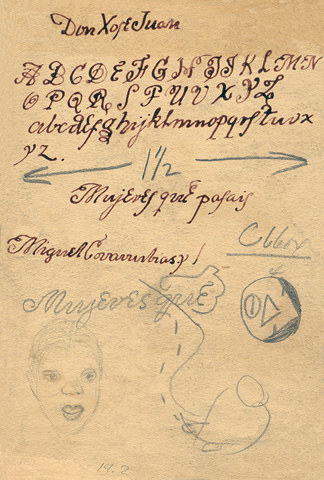 Don Xose Juan
A B C D E F G H I J K L M N
O P Q R S T U V X Y Z
abcdefghijklmnopqrstuvx
yz.
1 1/2
Mujeres que pasais
Miguel Covarrubias y
Mujeres que
14.2